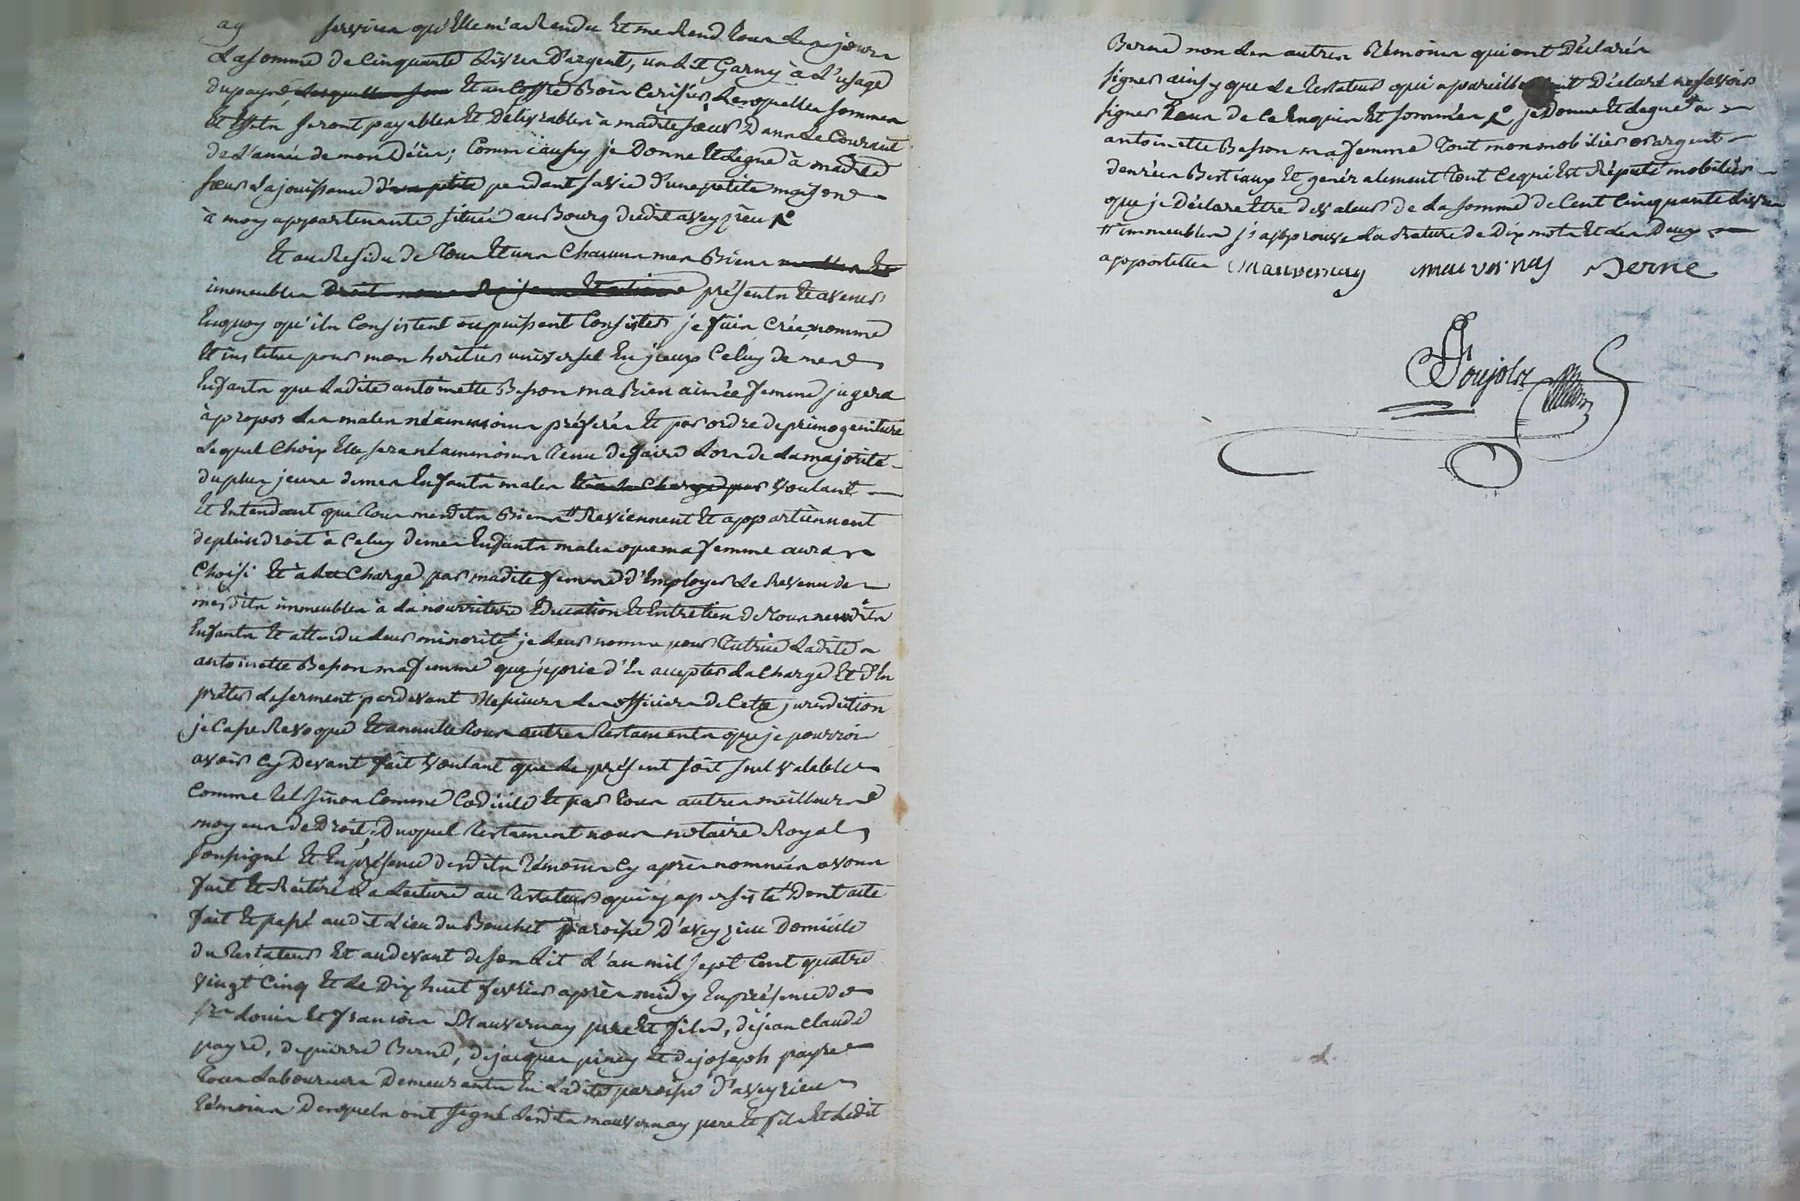 services qu'Elle m'a Rendu Et me Rend Tous les jours
La somme de Cinquante Livres D'argent, un Lit Garny à L'usage
du payis Lesquelles sera Et un Coffre Bois Cerisier, Lesquelles sommes
Et Effets seront payables Et Délivrables à madite sœur Dans Le Courant
de L'année de mon Décès; Comm'aussy je Donne Et Legue à madite
sœur La jouissance d'un petite pendant sa vie d'une petite maisone
à moy appartenante située au Bourg dudit aveyzieu
Et au Residu de Tous Et uns Chacuns mes Biens
immeubles présents Et avenir
En quoy qu'ils Consistent ou puissent Consister je fais Crée nomme
Et institue pour mon héritier universel En jceux Celuy de mes
Enfants que Ladite antoinette Besson ma Bien aimée femme jugera
à propos Les males néanmoins préférés Et par ordre de primogeniture
Lequel Choix Elle sera néanmoins Tenue de faire Lors de La majorité
du plus jeune de mes Enfants males Voulant
Et Entendant que Tous mesdits Biens # Reviennent Et appartiennent
de plein droit à Celuy de mes Enfants males que ma femme aura
Choisi Et à la Charge par madite femme d'Employer Le Revenu de
mesdits immeubles à La nourriture Education Et Entretien de Tous mesdits
Enfants Et attendu Leur minorité je Leur nomme pour Tutrice Ladite
antoinette Besson ma femme que je prie d'En accepter La Charge Et d'En
prêter Le serment pardevant Messieurs Les officiers de Cette jurisdiction
je Casse Revoque Et annulle Tous autres Testaments que je pourrois
avoir Cy Devant fait Voulant que Le présent soit seul valable
Comme Tel sinon Comme Codicile Et par Tous autres meilleurs
moyens de Droit; Duquel Testament nous notaire Royal
soussigné Et En présence desdits Témoins Cy après nommés avons
fait Et Réitéré La Lecture au Testateur qui y a persisté Dont acte
fait Et passé audit Lieu du Bouchet paroisse D'aveyzieu Domicile
du Testateur Et au devant de son Lit L'an mil sept Cent quatre
vingt Cinq Et Le Dix huit fevrier après midy En présence de
Louis Et françois Mauvernay pere Et fils, de jean Claude
payre, de pierre Berne, de jacques piney Et de joseph payre
Tous Laboureurs Demeurants En Ladite paroisse d'aveyzieu
Témoins Desquels ont signé Lesdits mauvernay pere Et fils Et Ledit
Berne non Les autres Témoins qui ont Déclarés
signer ainsy que Le Testateur qui a pareillement Déclaré ne savoir
signer De Ce Enquis Et sommés je Donne Et Legue à
antoinette Besson ma femme Tout mon mobilier or argent
denrées Bestiaux Et généralement Tout Ce qui Est Réputé mobilier
que je Déclare Etre de valeur de La somme de Cent Cinquante Livres
# immeubles j'approuve La Rature de Dix mots Et Les Deux
apostilles Mauvernay mauvernay Berne
Poujolz